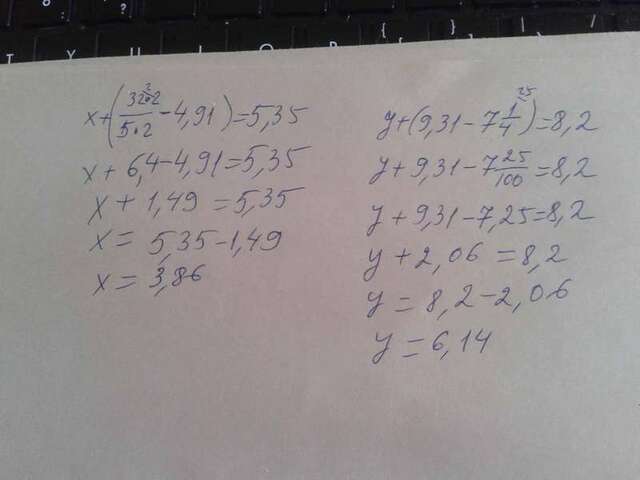 x+(32·2/5·2 - 4,91)=5,35
x+6,4-4,91=5,35
x+1,49=5,35
x=5,35-1,49
x=3,86
y+(9,31-7 1/4)=8,2
y+9,31-7 25/100=8,2
y+9,31-7,25=8,2
y+2,06=8,2
y=8,2-2,06
y=6,14